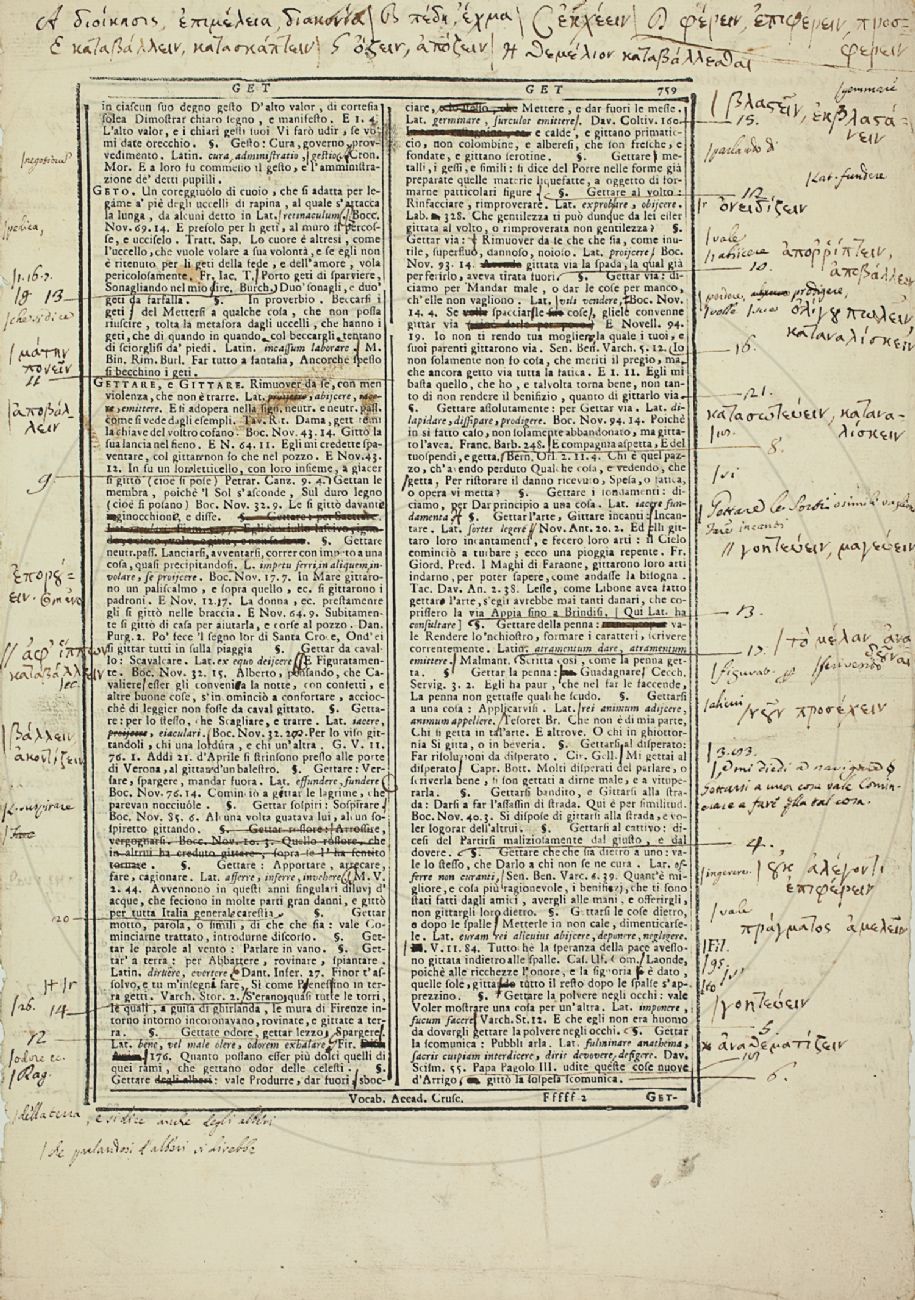 A διοίκησις, ἐπιμέλεια, διακονία / B πέδη, ἔχμα / C ἐκχέειν / D φέρειν, ἐπιφέρειν, προσ=
φέρειν
E καταβάλλειν, κατασκάπτειν / G ὄζειν, ἀπόζειν / H θεμέλιον καταβάλλεσθαι
GET
GET 759
in ciascun suo degno gesto D'alto valor, di cortesia
solea Dimostrar chiaro segno, e manifesto. E 1. 4.
L'alto valor, e i chiari gesti tuoi Vi farò udir, se vo-
mi date orecchio. §. Gesto: Cura, governo, prov-
vedimento. Latin. cura, administratio, gestio. Cron.
Mor. E a loro fu commesso il gesto, e l'amministra-
zione de' detti pupilli.
GETO. Un coreggiuòlo di cuoio, che si adatta per le-
gáme a' piè degli uccelli di rapina, al quale s'attacca
la lunga, da alcuni detto in Lat. retinaculum. Bocc.
Nov. 69. 14. E presolo per li geti, al muro il percos-
se, e ucciselo. Tratt. Sap. Lo cuore è altresì, come
l'uccello, che vuole volare a sua volontà, e se egli non
è ritenuto per li geti della fede, e dell'amore, vola
pericolosamente. Fr. Iac. T. Porto geti di sparviere,
Sonagliando nel mio gire. Burch. Duo' sonagli, e duo'
geti da farfalla. §. In proverbio. Beccarsi i
geti / del Mettersi a qualche cosa, che non possa
riuscire, tolta la metafora dagli uccelli, che hanno i
geti, che di quando in quando col beccargli tentano
di sciorglisi da' piedi. Latin. incassum laborare. M.
Bin. Rim. Burl. Far tutto a fantasia, Ancorchè spesso
si becchino i geti.
GETTARE, e GITTARE. Rimuover da se, con men
violenza, che non è trarre. Lat. projicere, abjicere,
emittere. Et si adopera nella sign. neutr. e neutr. pass.
come si vede dagli esempli. Tav. Rit. Dama, gettatemi
la chiave del vostro cofano. Boc. Nov. 43. 14. Gittò la
sua lancia nel fieno. E N. 64. 11. Egli mi credette spa-
ventare, col gittarmi non so che nel pozzo. E Nov. 43.
12. In su un lor letticello, con loro insieme, a giacer
si gittò (cioè si pose) Petrar. Canz. 9. 4. Gettan le
membra, poichè 'l Sol s'asconde, Sul duro legno
(cioè si posano) Boc. Nov. 32. 9. Le si gittò davante
inginocchione, e disse.
§. Gettare
neutr. pass. Lanciarsi, avventarsi, correr con impeto a una
cosa, quasi precipitandosi. L. impetu ferri, in aliquem in-
volare, se projicere. Boc. Nov. 17. 7. In Mare gittaro-
no un paliscalmo, e sopra quello, ec. si gittarono i
padroni. E Nov. 17. 17. La donna, ec. prestamente
gli si gittò nelle braccia. E Nov. 64. 9. Subitamen-
te si gittò di casa per aiutarla, e corse al pozzo. Dan.
Purg. 2. Po' fece 'l segno lor di Santa Croce, Ond' ei
si gittar tutti in sulla piaggia §. Gettar da caval-
lo: Scavalcare. Lat. ex equo dejicere. E Figuratamen-
te. Boc. Nov. 32. 15. Alberto, pensando, che Ca-
valiere esser gli conveniva la notte, con confetti, e
altre buone cose, s'incominciò a confortare, accioc-
chè di leggier non fosse da caval gittato. §. Getta-
re: per lo stesso, che Scagliare, e trarre. Lat. iacere,
projicere, eiaculari. Boc. Nov. 32. 20. Per lo viso git-
tandoli, chi una lordúra, e chi un'altra. G. V. 11.
76. 1. Addi 21. d'Aprile si strinsono presso alle porte
di Verona, al gittar d'un balestro. §. Gettare: Ver-
sare, spargere, mandar fuora. Lat. effundere, fundere.
Boc. Nov. 76. 14. Cominciò a gettar le lagrime, che
parevan nocciuòle. §. Gettar sospiri: Sospirare.
Boc. Nov. 85. 6. Alcuna volta guatava lui, alcun so-
spiretto gittando. §. Gettar rossore: Arrossire,
vergognarsi. Bocc. Nov. 10. 3. Quello rossore, che
in altrui ha creduto gittare, sopra se l'ha sentito
tornare. §. Gettare: Apportare, arrecare,
fare, cagionare. Lat. afferre, inferre, invehere. M. V.
2. 44. Avvennono in questi anni singulari diluvj d'
acque, che feciono in molte parti gran danni, e gittò
per tutta Italia generale carestia. §. Gettar
motto, parola, o simili, di che che sia: vale Co-
minciarne trattato, introdurne discorso. §. Get-
tar le parole al vento: Parlare in vano. §. Get-
tar' a terra: per Abbattere, rovinare, spiantare.
Latin. diruere, evertere. Dant. Infer. 27. Finor t'as-
solvo, e tu m'insegna fare, Sì come Penestrino in ter-
ra getti. Varch. Stor. 2. S'erano quasi tutte le torri,
le quali, a guisa di ghirlanda, le mura di Firenze in-
torno intorno incoronavano, rovinate, e gittate a ter-
ra. §. Gettare odore, gettar lezzo, Spargere.
Lat. bene, vel male olere, odorem exhalare. Fir.
176. Quanto possano esser più dolci quelli di
quei rami, che gettano odor delle celesti. §.
Gettare degli alberi: vale Produrre, dar fuori, sboc-
ciare, Mettere, e dar fuori le messe.
Lat. germinare, surculos emittere. Dav. Coltiv. 160.
e calde, e gittano primatic-
cio, non colombine, e alberesi, che son fresche, e
sondate, e gittano serotine. §. Gettare metalli,
i gessi, e simili: si dice del Porre nelle forme già
preparate quelle materie liquefatte, a oggetto di for-
marne particolari figure. §. Gettare al volto:
Rinfacciare, rimproverare. Lat. exprobrare, obijcere.
Lab. 328. Che gentilezza ti può dunque da lei esser
gittata al volto, o rimproverata non gentilezza? §.
Gettar via: Rimuover da se che che sia, come inu-
tile, superfluo, dannoso, noioso. Lat. projicere. Boc.
Nov. 93. 14. gittata via la spada, la qual già
per ferirlo, aveva tirata fuori. §. Gettar via: di-
ciamo per Mandar male, o dar le cose per manco,
ch'elle non vagliono. Lat. vili vendere. Boc. Nov.
14. 4. Se volle spacciar le cose, gliele convenne
gittar via E Novell. 94.
19. Io non ti rendo tua mogliera, la quale i tuoi, e i
suoi parenti gittarono via. Sen. Ben. Varch. 5. 12. Io
non solamente non fo cosa, che meriti il pregio, ma
che ancora getto via tutta la fatica. E 1. 11. Egli mi
basta quello, che ho, e talvolta torna bene, non tan-
to di non rendere il benifizio, quanto di gittarlo via.
§. Gettare assolutamente: per Gettar via. Lat. di-
lapidare, dissipare, prodigere. Boc. Nov. 94. 14. Poichè
in si fatto caso, non solamente abbandonato, ma gitta-
to l'avea. Franc. Barb. 248. E compagnia aspetta, E del
tuo spendi, e getta. Bern. Orl. 2. 11. 4. Chi è quel paz-
zo, ch'avendo perduto Qualche cosa, e vedendo, che
getta, Per ristorare il danno ricevuto, Spesa, o fatica,
o opera vi metta? §. Gettare i fondamenti: di-
ciamo, per Dar principio a una cosa. Lat. iacere fun-
damenta. §. Gettar l'arte, Gittare incanti: Incan-
tare. Lat. sortes legere. Nov. Ant. 20. 2. Ed elli git-
taro loro incantamenti, e fecero loro arti: il Cielo
cominciò a turbare; ecco una pioggia repente. Fr.
Giord. Pred. I Maghi di Faraone, gittarono loro arti
indarno, per poter sapere, come andasse la bisogna.
Tac. Dav. An. 2. 38. Lesse, come Libone avea fatto
gettare l'arte, s'egli avrebbe mai tanti danari, che co-
prissero la via Appia sino a Brindisi. [Qui Lat. ha
consultare] §. Gettare della penna: va-
le Rendere lo 'nchiostro, formare i caratteri, scrivere
correntemente. Latin. atramentum dare, atramentum
emittere. Malmant. Scritta così, come la penna get-
ta. §. Gettar la penna: Guadagnare. Cecch.
Servig. 3. 2. Egli ha paur, che nel far le faccende,
La penna non gettasse qualche scudo. §. Gettarsi
a una cosa: Applicarvisi. Lat. rei animum adijcere,
animum appellere. Tesoret Br. Che non è di mia parte,
Chi si getta in tal'arte. E altrove. O chi in ghiottor-
nia Si gitta, o in beveria. §. Gettarsi al disperato:
Far risoluzioni da disperato. Cir. Gell. Mi gettai al
disperato. Capr. Bott. Molti disperati del parlare, o
scriverla bene, si son gettati a dirne male, e a vitupe-
rarla. §. Gettarsi bandito, e Gittarsi alla stra-
da: Darsi a far l'assassin di strada. Qui è per similitud.
Boc. Nov. 40. 3. Si dispose di gittarsi alla strada, e vo-
ler logorar dell'altrui. §. Gettarsi al cattivo: di-
cesi del Partirsi maliziosamente dal giusto, e dal
dovere. §. Gettare che che sia dietro a uno: va-
le lo stesso, che Darlo a chi non se ne cura. Lat. of-
ferre non curanti. Sen. Ben. Varc. 6. 39. Quant'è mi-
gliore, e cosa più ragionevole, i benifizj, che ti sono
stati fatti dagli amici, avergli alle mani, e offerirgli,
non gittargli loro dietro. §. Gettarsi le cose dietro,
o dopo le spalle: Metterle in non cale, dimenticarse-
le. Lat. curam rei alicuius abijcere, deponere, neglegere.
M. V. 11. 84. Tutto che la speranza della pace avesso-
no gittata indietro alle spalle. Cas. Uf. Com. Laonde,
poichè alle ricchezze l'onore, e la signoria si è dato,
quelle sole, gittando tutto il resto dopo le spalle s'ap-
prezzino. §. Gettare la polvere negli occhi: vale
Voler mostrare una cosa per un'altra. Lat. imponere,
fucum facere. Varch. St. 12. E che egli non era huomo
da dovergli gettare la polvere negli occhi. §. Gettar
la scomunica: Pubblicarla. Lat. fulminare anathema,
sacris cuipiam interdicere, diris devovere, defigere. Dav.
Scism. 55. Papa Pagolo III. udite queste cose nuove
d'Arrigo, gittò la sospesa scomunica.
Vocab. Accad. Crusc. Fffff 2 GET-
negotium
pedica,
13
che si dice
μάτην
πονεῖν
11
ἀποβάλ=
λειν
9
βάλλειν
ἀκοντίζειν
suspirare
20
26. 14
12
odore ec.
Rag.
della terra, e si dice anche degli alberi
de parlandosi d'alberi si direbbe
gemmare
βλαστεῖν, ἐκβλαστά=
νειν
15.
parlando di
Lat. fundere
12.
ὀνειδίζειν
vale
abiicere
10.
ἀποῤῥίπτειν,
ἀποβάλλειν
ὀλίγου πωλεῖν
καταναλίσκειν
16.
21.
κατασωτεύειν, κατανα=
λίσκειν
8.
vi
Gettare le sorti o simili vagliono
fare incanti
γοητεύειν, μαγεύειν
13.
τὸ μέλαν ἀνα
διδόναι
19.
figurat.
scrivendo
νοῦν προσέχειν
3. 93.
E mi diedi a navigare
Gettarsi a una cosa vale Comin=
ciare a fare quella tal cosa.
4.
ingerere.
οὐκ ἀλέγοντι
ἐπιφέρειν
vale
πράγματος ἀμελεῖν
Fil.
95.
γοητεύειν
5.
ἀναθεματίζειν
6.